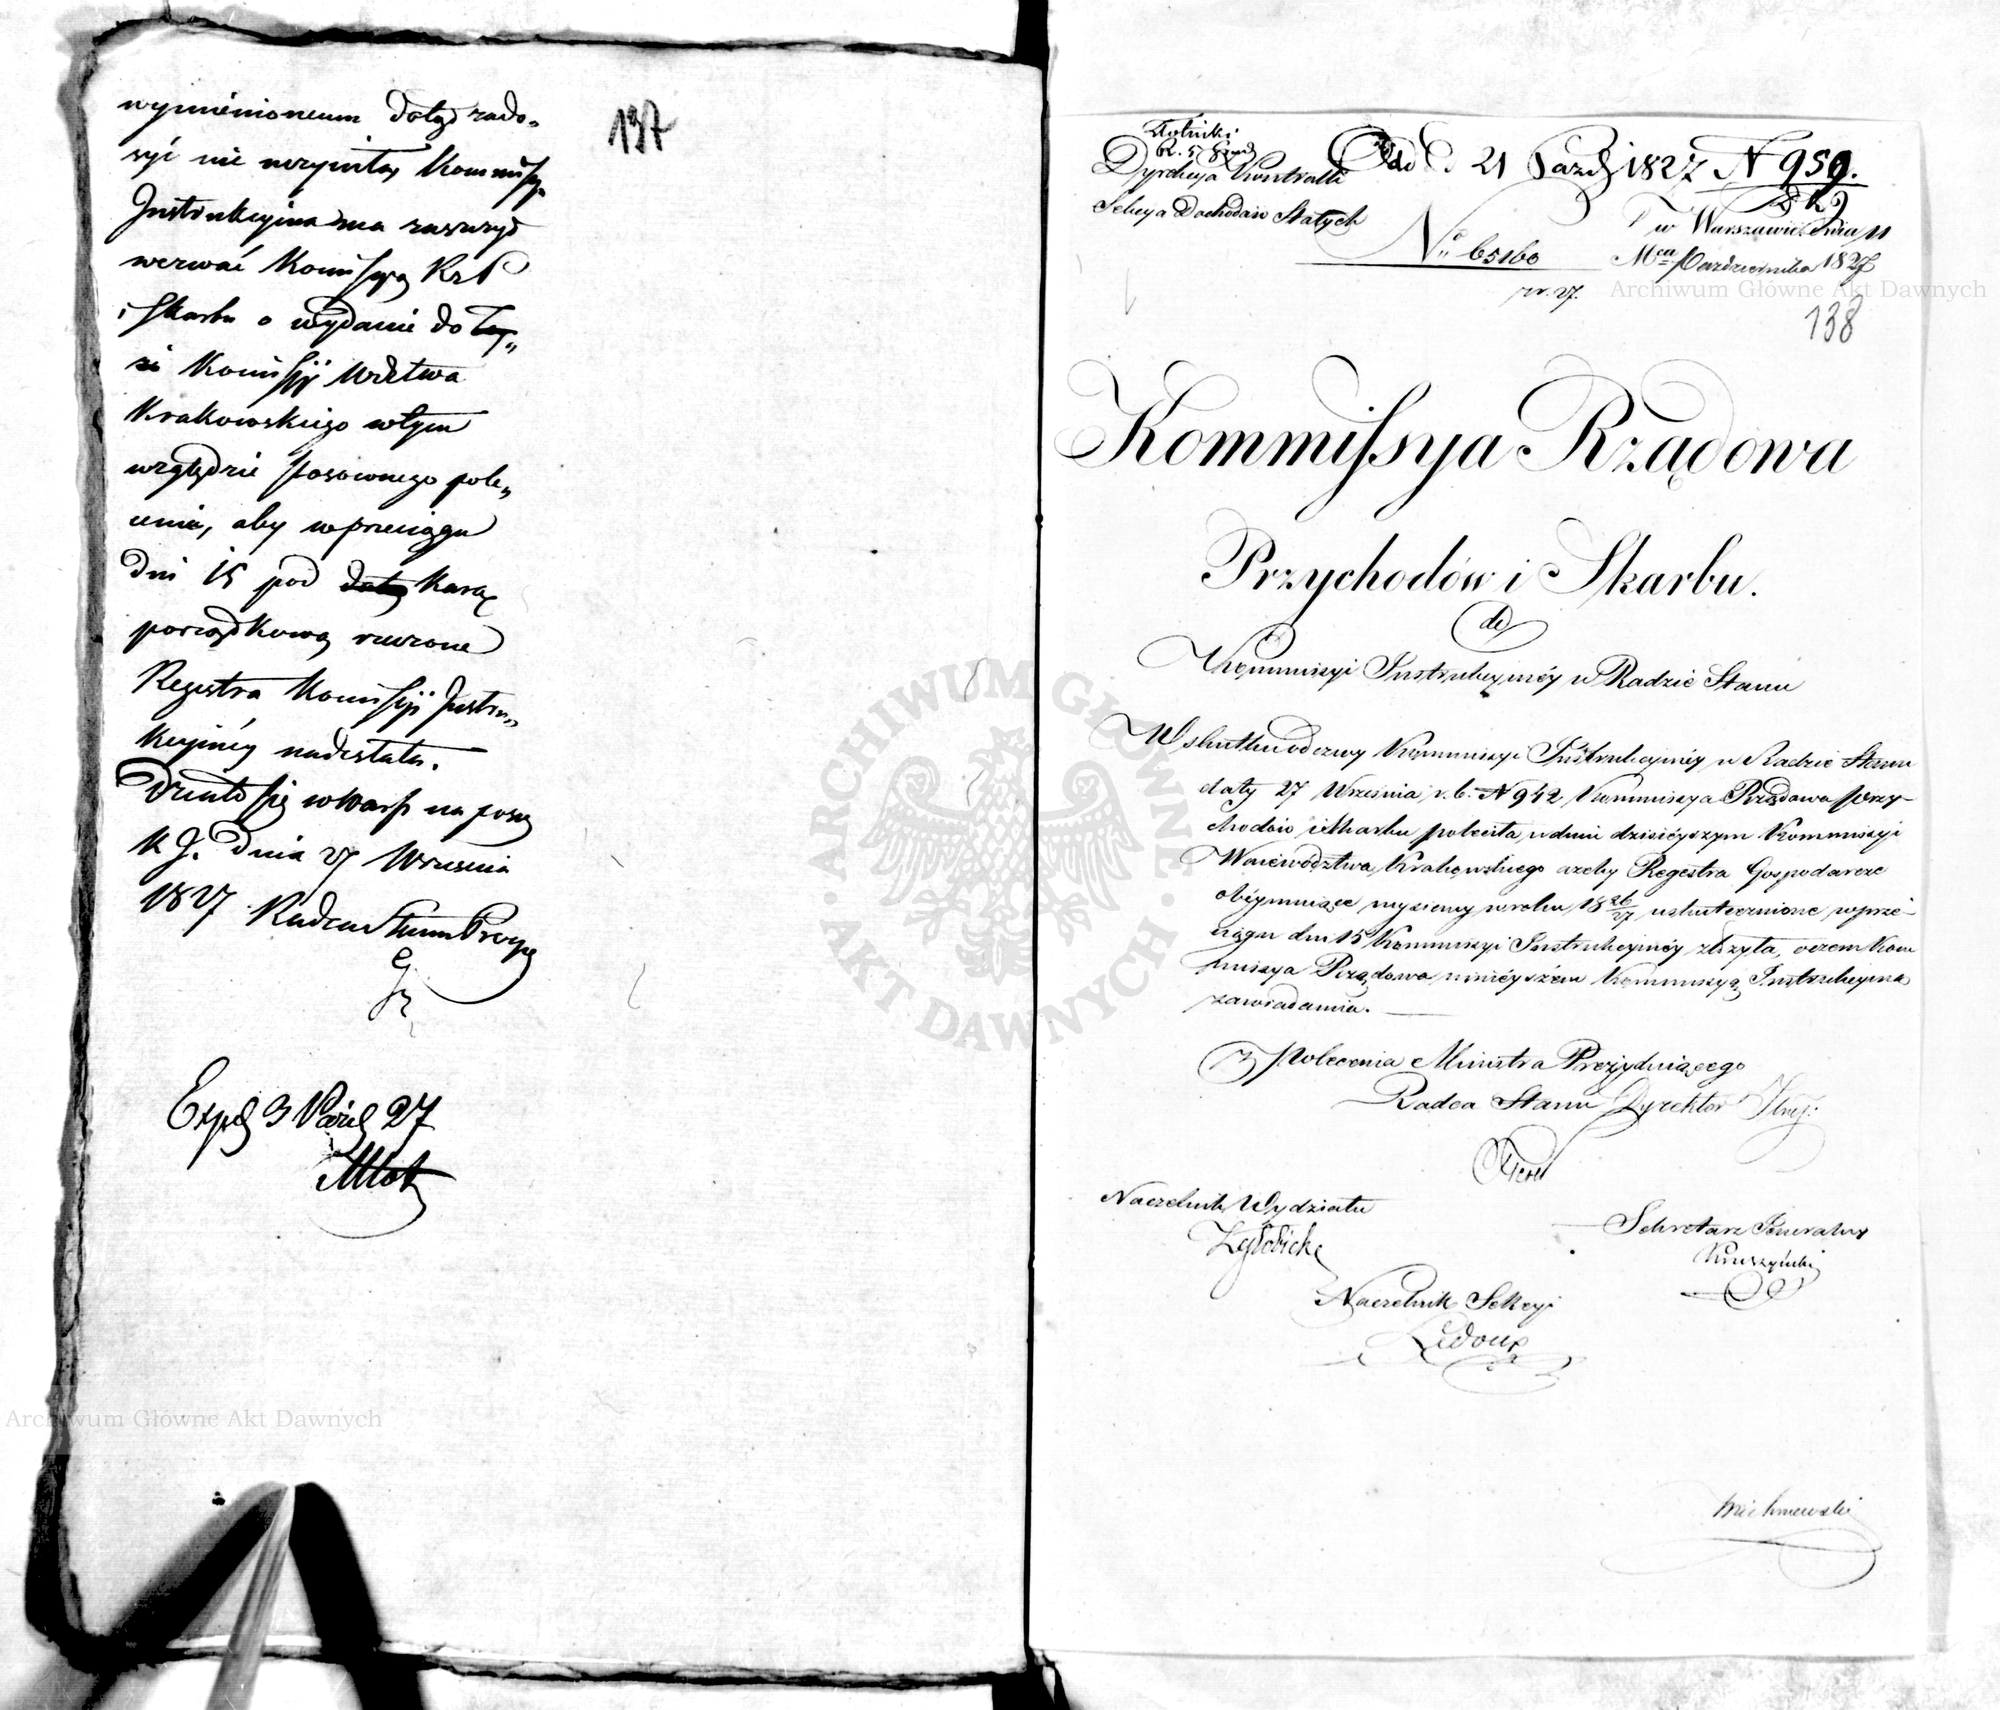 137
wymienioneum dotąd zado„
syć nie uczyniła, Kommissya
Instrukcyina ma zaszczyd
wezwać Kommissyą RzP
i Skarbu o wydanie do tey„
że Komissyi Wdztwa
Krakowskiego w tym
względzie stosownego pole„
cenia, aby w przeciągu
dni 15 pod karą
porządkową rzeczone
Regestra Komissyi Instru„
kcyinéy nadesłała.
Działo się w Warsz na posie
K J. dnia 27 Września
1827 Radca Stanu Prezy
Exped 3 Paźd 27
Dyrekcya Kontrolli
Sekcya Dochodów Stałych
d 21 Paźdz 1827 N 959.
N 65160
w Warszawie Dnia 11
Mca Października 1827
138
Kommissya Rządowa
Przychodów i Skarbu.
do
Kommissyi Instrukcyinéy w Radzie Stanu
W skutku odezwy Kommissyi Instrukcyinéy w Radzie Stanu
daty 27 Września r. b. N 942 Kommissya Rządowa Przy-
chodów i Skarbu poleciła w dniu dzisieyszym Kommissyi
Woiewództwa Krakowskiego ażeby Regestra Gospodarcze
obéymuiące wysiewy w roku 1826/27 uskutecznione w prze-
ciągu dni 15 Kommissyi Instrukcyinéy złożyła, oczem Kom
missya Rządowa ninieyszém Kommissyą Instrukcyiną
zawiadamia.
Z Polecenia Ministra Prezyduiącego
Radca Stanu Dyrektor Jlny:
Naczelnik Wydziału
Zgłobicki
Sekretarz Jeneralny
Kruszyński
Naczelnik Sekcyi
Ledoux
Archiwum Główne Akt Dawnych
Archiwum Główne Akt Dawnych
ARCHIWUM GŁÓWNE AKT DAWNYCH